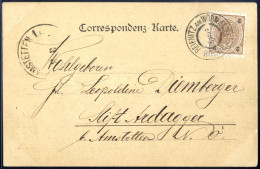 Correspondenz-Karte.
AMSTETTEN
Wohlgeboren
Frl. Leopoldine Diemberger
Stift Ardagger
b. Amstetten N. Ö.